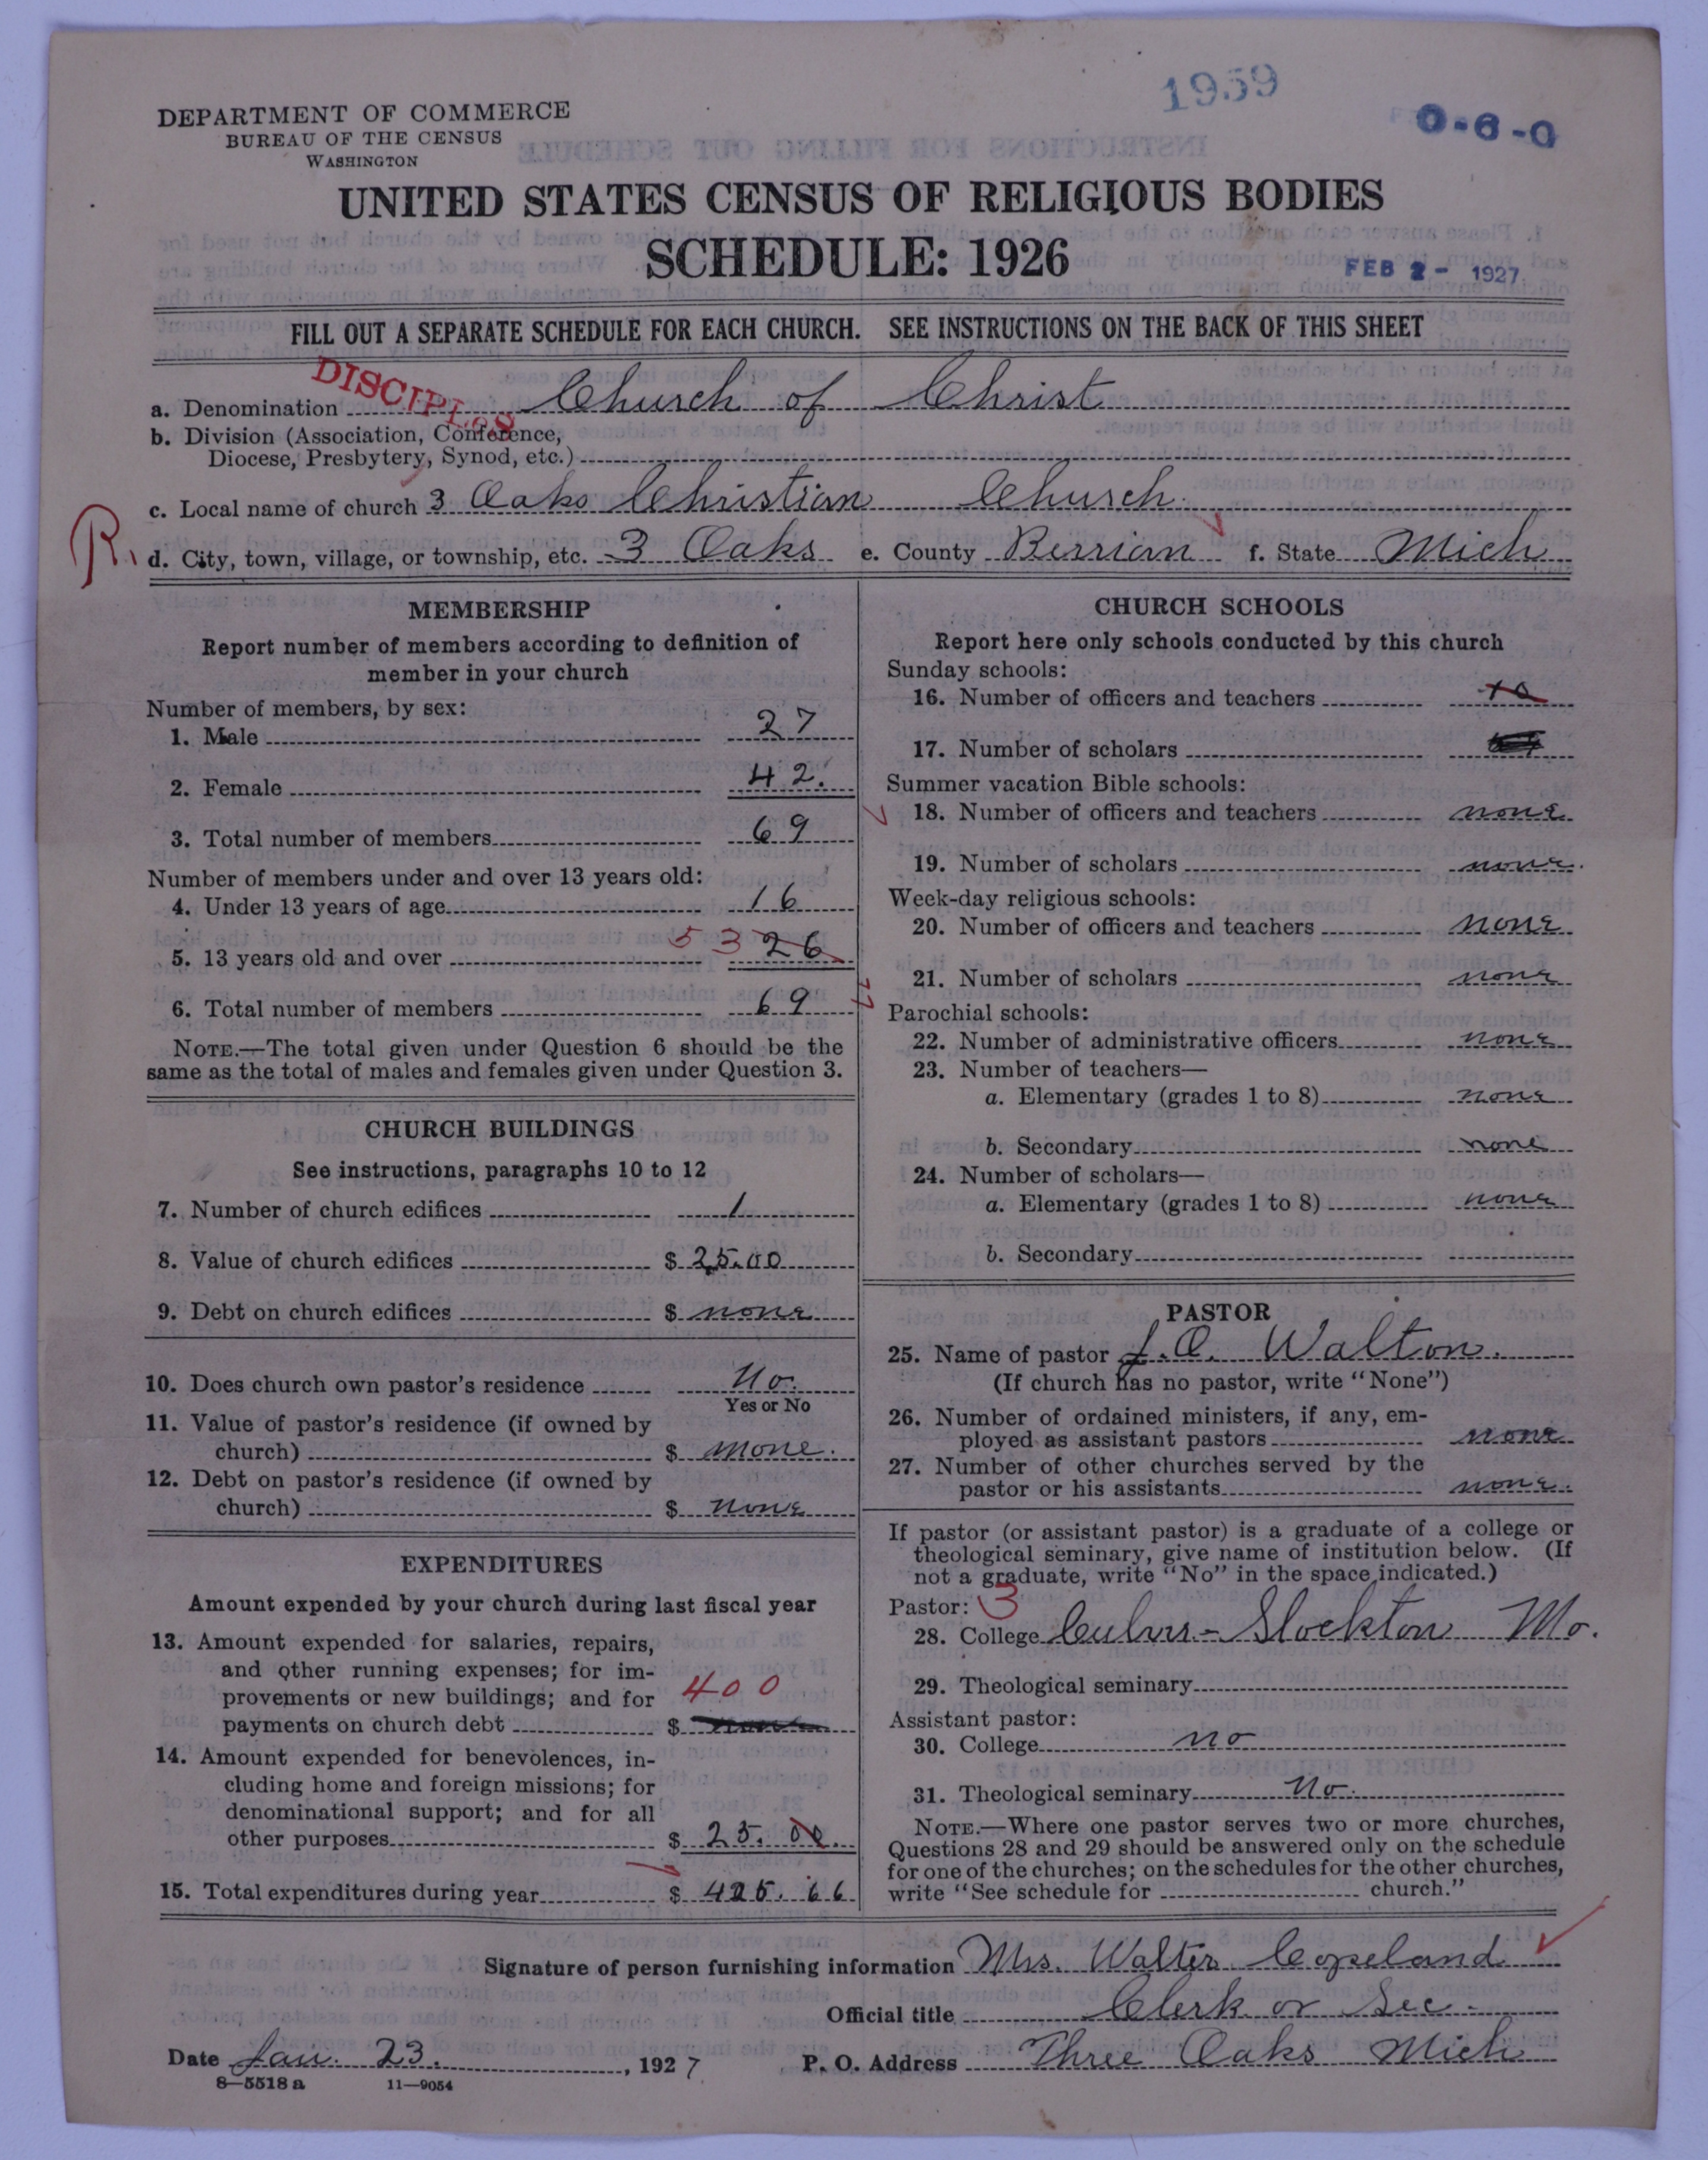 1959
0-6-0
DEPARTMENT OF COMMERCE
BUREAU OF THE CENSUS
WASHINGTON
UNITED STATES CENSUS OF RELIGIOUS BODIES
SCHEDULE: 1926
FEB 2 - 1927
FILL OUT A SEPARATE SCHEDULE FOR EACH CHURCH. SEE INSTRUCTIONS ON THE BACK OF THIS SHEET
DISCIPLES
a. Denomination Church of Christ
b. Division (Association, Conference,
Diocese, Presbytery, Synod, etc.)
c. Local name of church 3 Oaks Christian Church.
R.
d. City, town, village, or township, etc. 3 Oaks e. County Berrian f. State Mich
MEMBERSHIP
Report number of members according to definition of
member in your church
Number of members, by sex:
1. Male 27
2. Female 42.
3. Total number of members 69
Number of members under and over 13 years old:
4. Under 13 years of age 16
5. 13 years old and over 53 26
6. Total number of members 69
NOTE.—The total given under Question 6 should be the
same as the total of males and females given under Question 3.
CHURCH BUILDINGS
See instructions, paragraphs 10 to 12
7. Number of church edifices 1
8. Value of church edifices $ 25.00
9. Debt on church edifices $ none
10. Does church own pastor's residence No.
Yes or No
11. Value of pastor's residence (if owned by
church) $ none.
12. Debt on pastor's residence (if owned by
church) $ none
EXPENDITURES
Amount expended by your church during last fiscal year
13. Amount expended for salaries, repairs,
and other running expenses; for im-
provements or new buildings; and for 400
payments on church debt $
14. Amount expended for benevolences, in-
cluding home and foreign missions; for
denominational support; and for all
other purposes $ 25.00.
15. Total expenditures during year $ 425.
CHURCH SCHOOLS
Report here only schools conducted by this church
Sunday schools:
16. Number of officers and teachers
17. Number of scholars
Summer vacation Bible schools:
18. Number of officers and teachers none
19. Number of scholars none.
Week-day religious schools:
20. Number of officers and teachers none
21. Number of scholars none
Parochial schools:
22. Number of administrative officers none
23. Number of teachers—
a. Elementary (grades 1 to 8) none
b. Secondary none
24. Number of scholars—
a. Elementary (grades 1 to 8) none
b. Secondary
PASTOR
25. Name of pastor J.O. Walton.
(If church has no pastor, write "None")
26. Number of ordained ministers, if any, em-
ployed as assistant pastors none
27. Number of other churches served by the
pastor or his assistants none.
If pastor (or assistant pastor) is a graduate of a college or
theological seminary, give name of institution below. (If
not a graduate, write "No" in the space indicated.)
Pastor: 3
28. College Culver-Stockton Mo.
29. Theological seminary
Assistant pastor:
30. College no
31. Theological seminary No.
NOTE.—Where one pastor serves two or more churches,
Questions 28 and 29 should be answered only on the schedule
for one of the churches; on the schedules for the other churches,
write "See schedule for church."
Signature of person furnishing information Mrs. Walter Copeland
Official title Clerk or Sec.
Date Jan. 23. , 1927 P. O. Address Three Oaks Mich
8—5518 a 11—9054